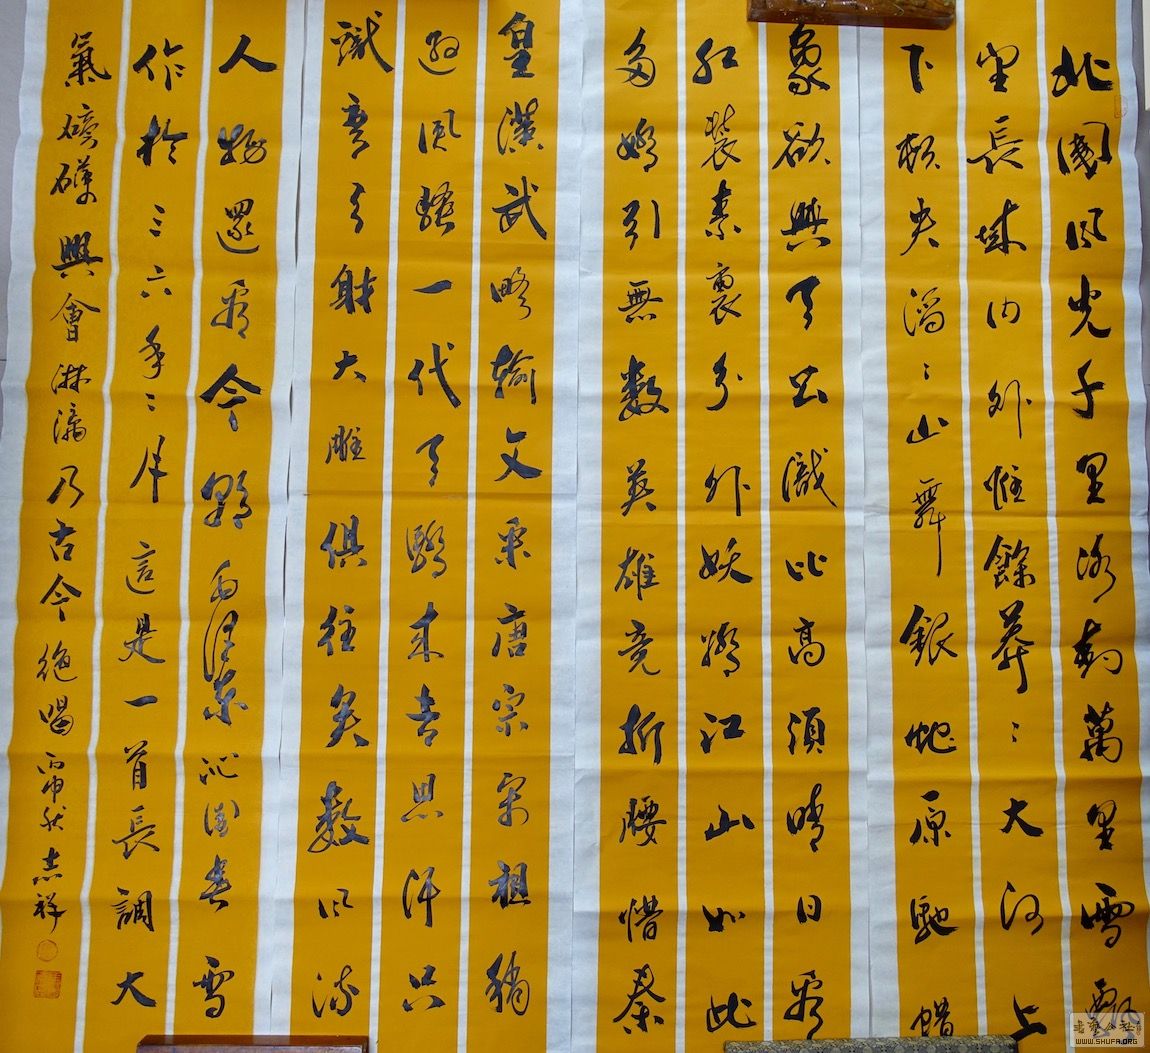 北國風光千里冰封萬里雪飄
望長城内外惟餘莽〻大河上
下頓失滔〻山舞銀蛇原馳蜡
象欲與天公試比高須晴日看
紅裝素裹分外妖嬈江山如此
多嬌引無數英雄竞折腰惜秦
皇漢武略輸文采唐宗宋祖稍
遜風騷一代天驕成吉思汗只
識彎弓射大雕俱往矣數風流
人物還看今朝毛澤東沁園春雪
作於三六年二月這是一首長調大
氣磅礴興會淋漓乃古今絶唱丙申秋志祥
書藝公社
WWW.SHUFA.ORG